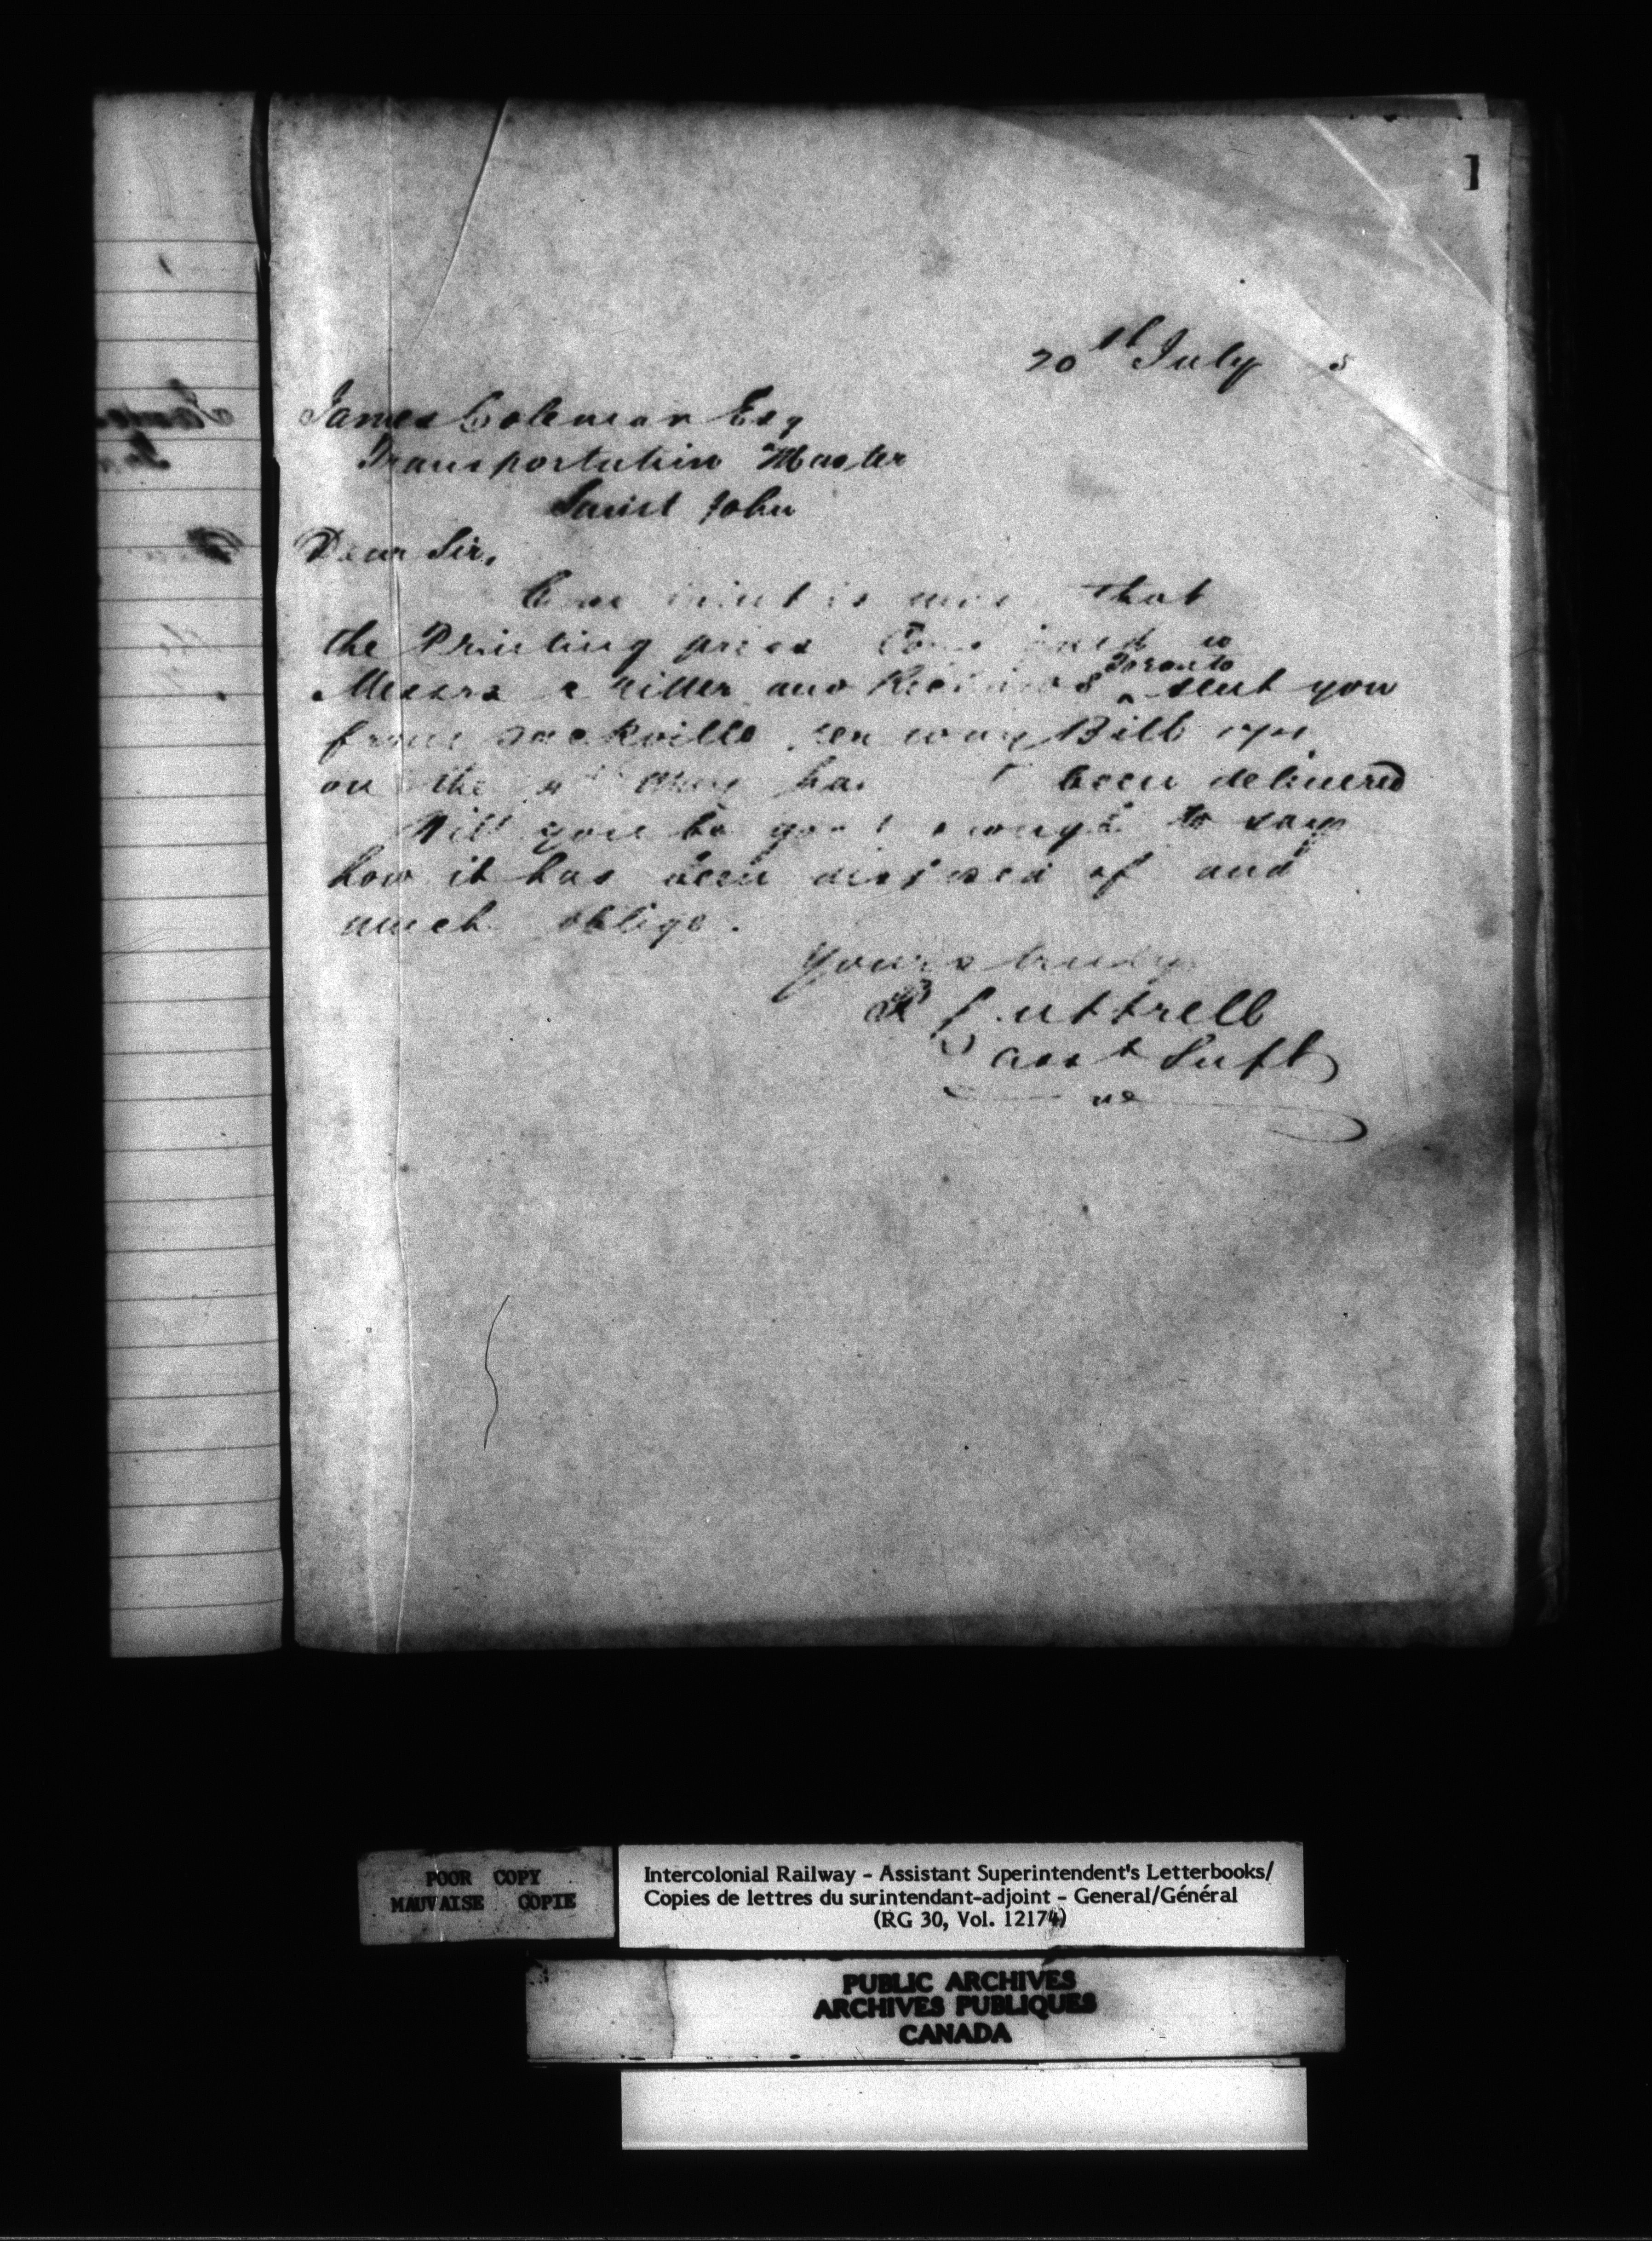 1
20th July 5
James Coleman Esq
Transportation Master
Saint John
Dear Sir,
Complaint is made that
the Printing press Consigned to
Messrs Miller and Toronto sent you
from Sackville per way Bill
on the May has been delivered
Will you be good enough to say
how it has been disposed of and
much oblige.
Yours truly
Luttrell
asst Supt
POOR COPY
MAUVAISE COPIE
Intercolonial Railway - Assistant Superintendent's Letterbooks/
Copies de lettres du surintendant-adjoint - General/Général
(RG 30, Vol. 12174)
PUBLIC ARCHIVES
ARCHIVES PUBLIQUES
CANADA